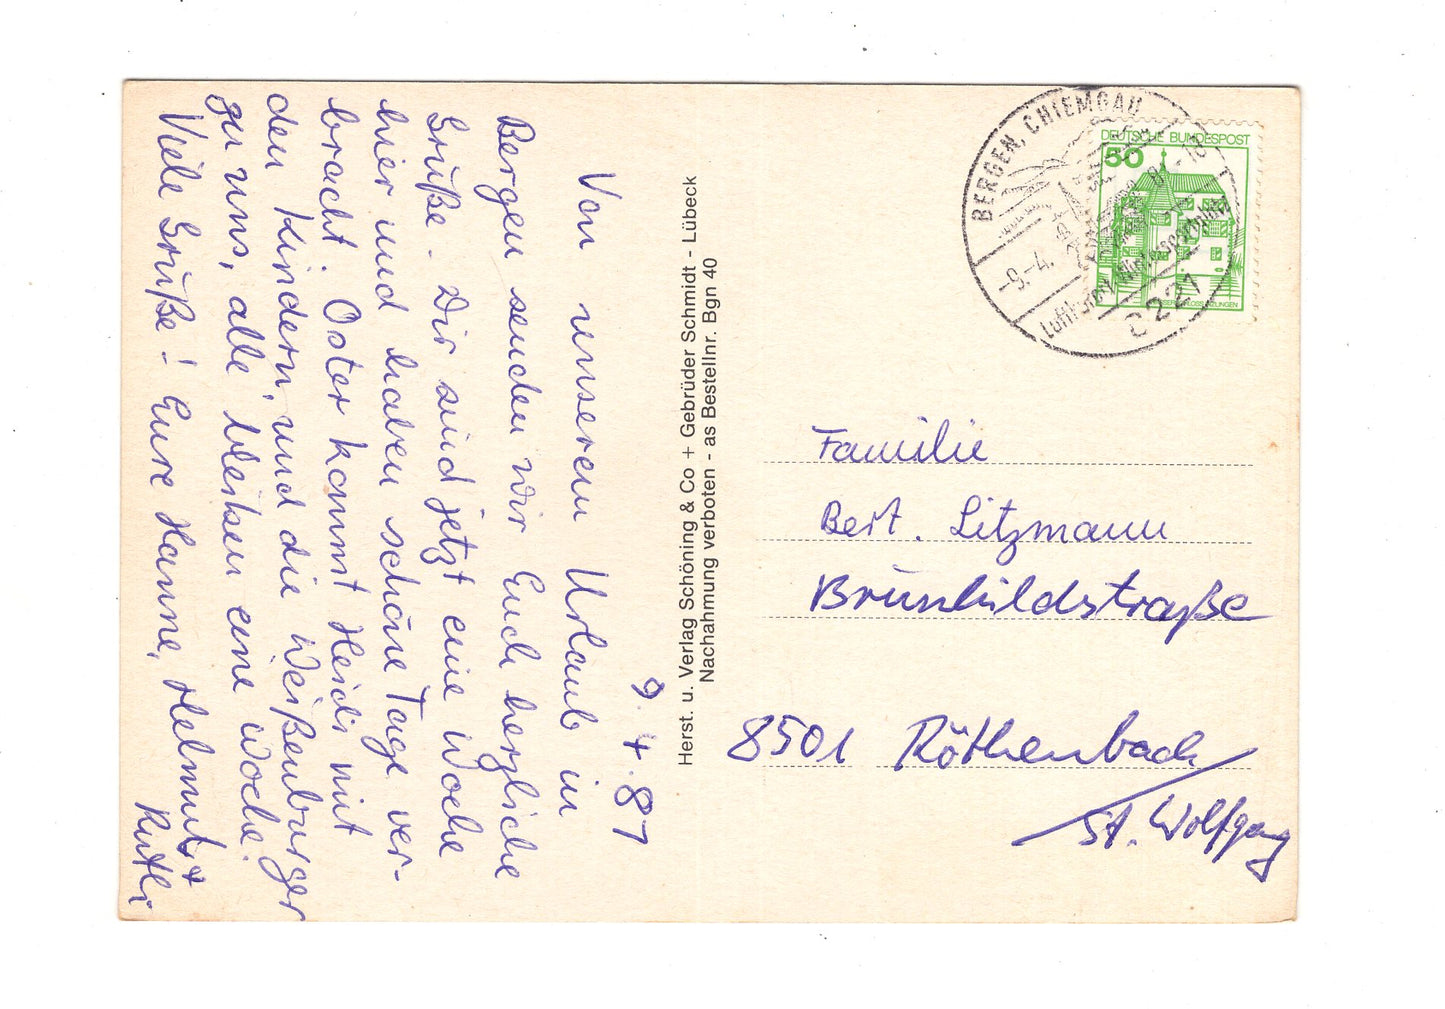 9. 4. 87
Von unserem Urlaub in
Bergen senden wir Euch herzliche
Grüße. Wir sind jetzt eine Woche
hier und haben schöne Tage ver-
bracht. Oster kommt Heidi mit
den Kindern, und die Weißenburger
zu uns, alle bleiben eine Woche.
Viele Grüße! Eure Hanne, Helmut +
Herst. u. Verlag Schöning & Co + Gebrüder Schmidt - Lübeck
Nachahmung verboten - as Bestellnr. Bgn 40
BERGEN, CHIEMGAU
-9.-4.
8221
DEUTSCHE BUNDESPOST
50
Familie
Bert. Litzmann
Brunhildstraße
8501 Röthenbach/
St. Wolfgang